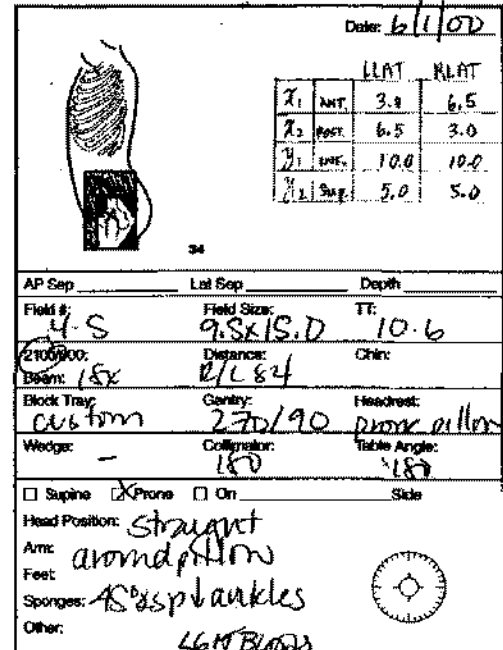 Date: 6/1/00
LLAT RLAT
X₁ ANT. 3.0 6.5
X₂ POST. 6.5 3.0
Y₁ INF. 10.0 10.0
Y₂ SUP. 5.0 5.0
34
AP Sep Lat Sep Depth
Field #: Field Size: TT:
4-5 9.5x15.0 10.6
2100/600: Distance: Chin:
Beam: 18x R/L 84
Block Tray: Gantry: Headrest:
custom 270/90 prone pillow
Wedge: Collimator: Table Angle:
- 180 180
Supine X Prone On Side
Head Position: Straight
Arm: around pillow
Feet:
Sponges: ankles
Other: